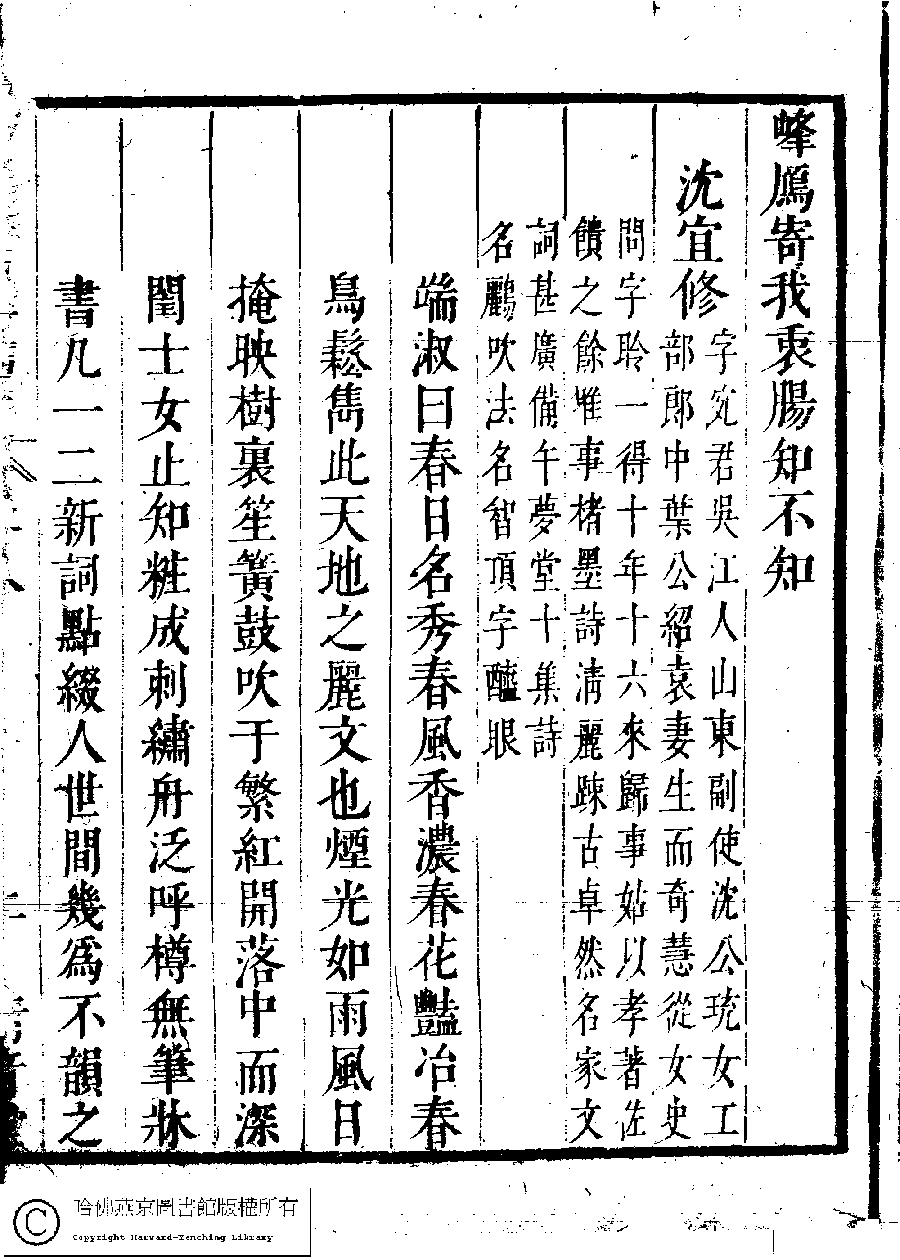 蜂鴈寄我衷腸知不知
沈宜修
字宛君吳江人山東副使沈公珫女工
部郎中葉公紹袁妻生而奇慧從女史
問字聆一得十年十六來歸事姑以孝著佐
饋之餘唯事楮墨詩清麗踈古卓然名家文
詞甚廣備午夢堂十集詩
名鸝吹法名智頂字醯眼
端淑曰春日名秀春風香濃春花豔冶春
鳥鬆雋此天地之麗文也煙光如雨風日
掩映樹裏笙簧鼓吹于繁紅開落中而深
閨士女止知粧成刺繡舟泛呼樽無筆牀
書几一二新詞點綴人世間幾為不韻之
哈佛燕京圖書館版權所有
Copyright Harvard-Yenching Library